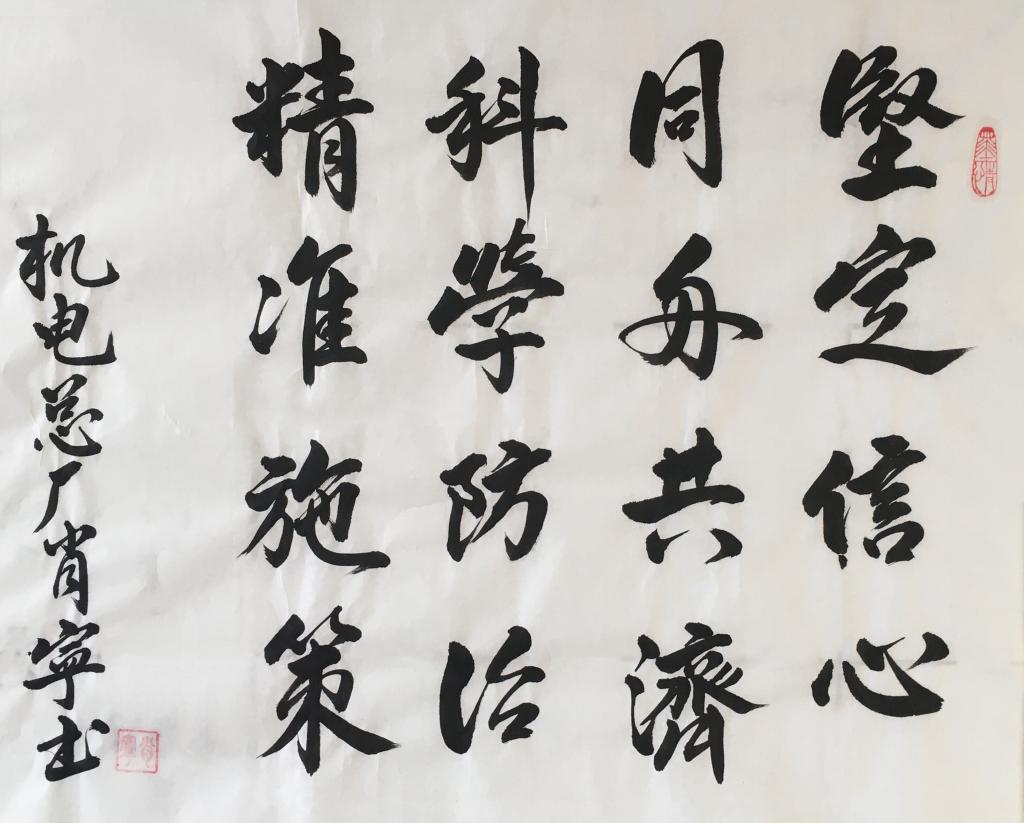 堅定信心
同舟共濟
科學防治
精准施策
机电总厂肖寧书